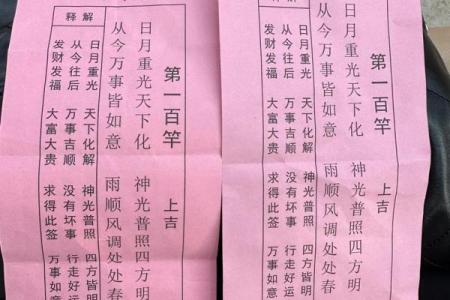 第一百竿 上吉
日月重光天下化 神光普照四方明
从今万事皆如意 雨顺风调处处春
释解
日月重光 天下化解 神光普照 四方皆明
从今往后 万事吉顺 没有坏事 行走好运
发财发福 大富大贵 求得此签 万事如意
第一百竿 上吉
日月重光天下化 神光普照四方明
从今万事皆如意 雨顺风调处处春
释解
日月重光 天下化解 神光普照 四方皆明
从今往后 万事吉顺 没有坏事 行走好运
发财发福 大富大贵 求得此签 万事如意